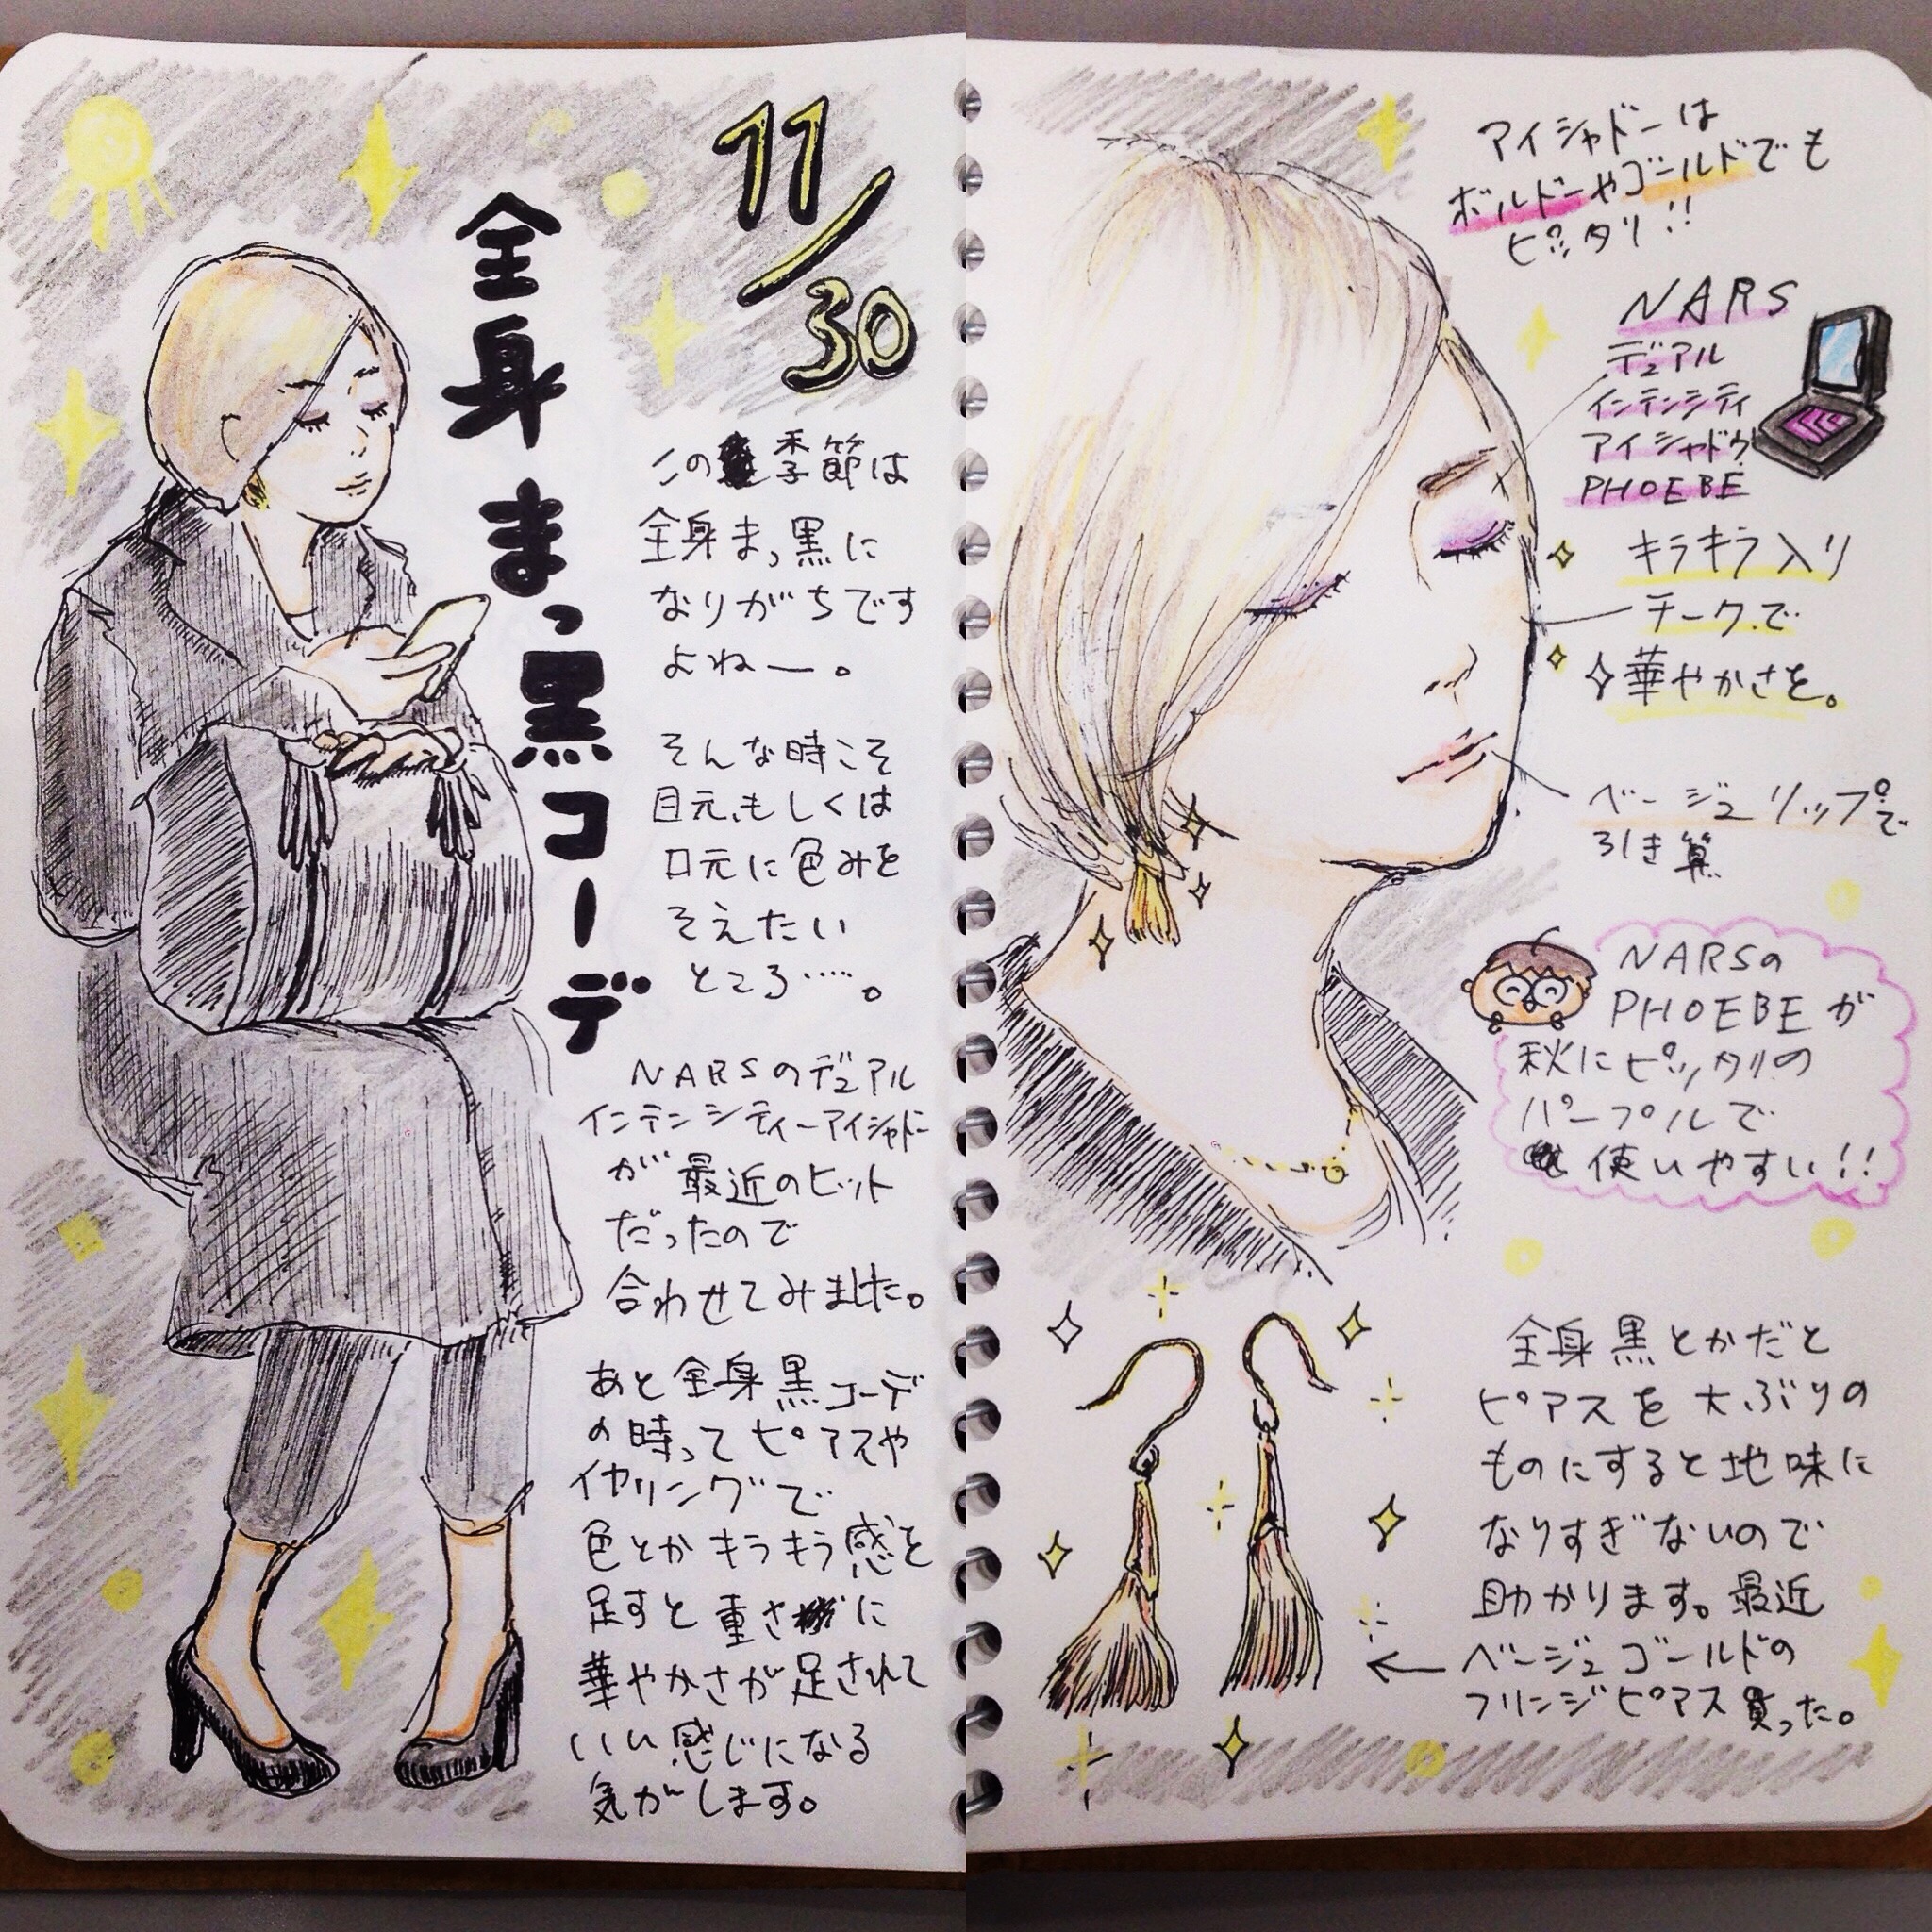 11/30
全身まっ黒コーデ
この季節は
全身まっ黒に
なりがちです
よねー。
そんな時こそ
目元、もしくは
口元に色みを
そえたい
ところ……。
NARSのデュアル
インテンシティーアイシャドー
が最近のヒット
だったので
合わせてみました。
あと全身黒コーデ
の時ってピアスや
イヤリングで
色とかキラキラ感を
足すと重さに
華やかさが足されて
いい感じになる
気がします。
アイシャドーは
ボルドーやゴールドでも
ピッタリ!!
NARS
デュアル
インテンシティ
アイシャドウ
PHOEBE
キラキラ入り
チークで
華やかさを。
ベージュリップで
引き算
NARSの
PHOEBEが
秋にピッタリの
パープルで
使いやすい!!
全身黒とかだと
ピアスを大ぶりの
ものにすると地味に
なりすぎないので
助かります。最近
←ベージュゴールドの
フリンジピアス買った。